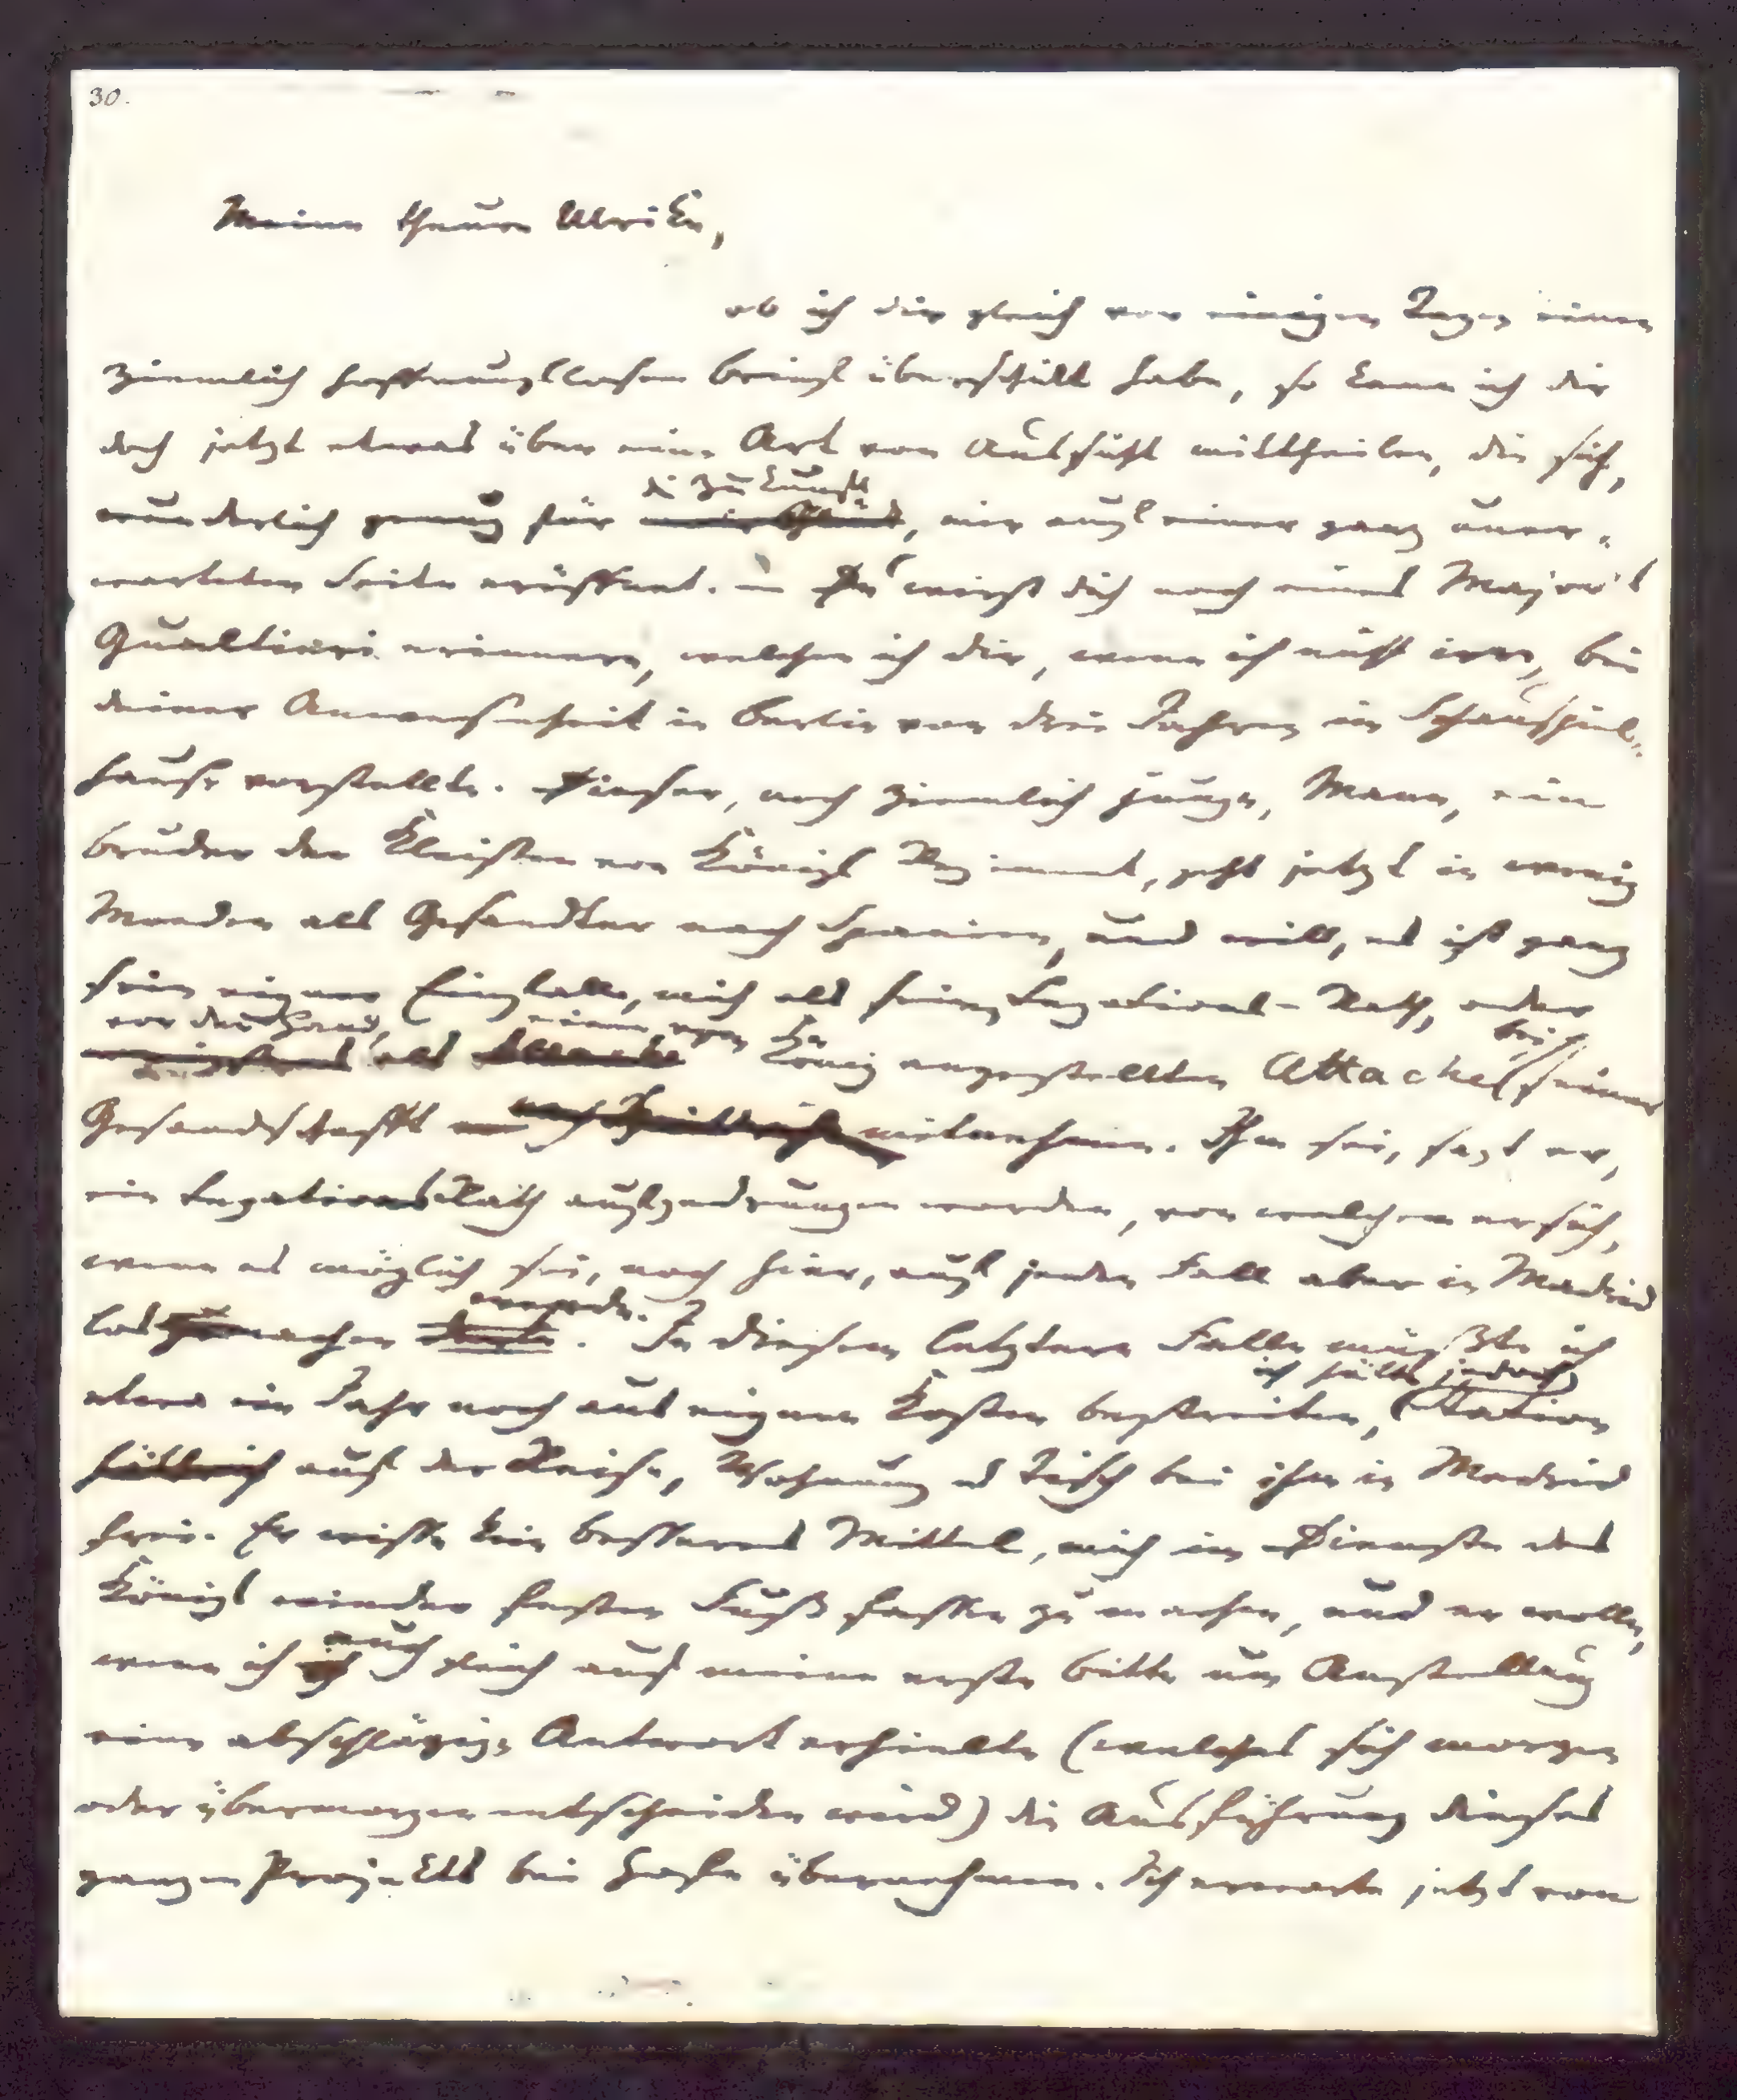 30.
Meine theure Ulrike,
ob ich dir gleich vor einigen Tagen einen
ziemlich hoffnungslosen Brief überschickt habe, so kann ich dir
doch jetzt etwas über eine Art von Aussicht mittheilen, die sich,
die Zukunft
wunderlich genug für, mir auf einer ganz uner-
warteten Seite eröffnet. – Du wirst dich noch eines Major's
Gualtieri erinnern, welchen ich dir, wenn ich nicht irre, bei
deiner Anwesenheit in Berlin vor drei Jahren im Schauspiel-
hause vorstellte. Dieser, noch ziemlich junge, Mann, ein
Bruder der Kleisten von Königs Regiment, geht jetzt in wenig
Monden als Gesandter nach Spanien, und will, es ist ganz
sein eigner Einfall, mich als seinen Legations-Rath, oder
vor der Hand, einen vom bei
als König angestellten Attaché seiner
Gesandschafft mitnehmen. Ihm sei, sagt er,
ein LegationsRath aufgedrungen worden, von welchem er sich,
wenn es möglich sei, noch hier, auf jeden Fall aber in Madrid
werde.
losmachen. In diesem letztern Falle müßte ich
ich hätte jedoch
etwa ein Jahr noch aus eignen Kosten bestreiten, Station
auf der Reise, Wohnung u Tisch bei ihm in Madrid
frei. Er wisse kein besseres Mittel, mich im Dienste des
Königs wieder festen Fuß fassen zu machen, und er wolle,
auch
wenn ich gleich auf meine erste Bitte um Anstellung
eine abschlägige Antwort erhielte (welches sich morgen
oder übermorgen entscheiden wird) die Ausführung dieses
ganzen Projekts bei Hofe übernehmen. Ich erwarte jetzt von